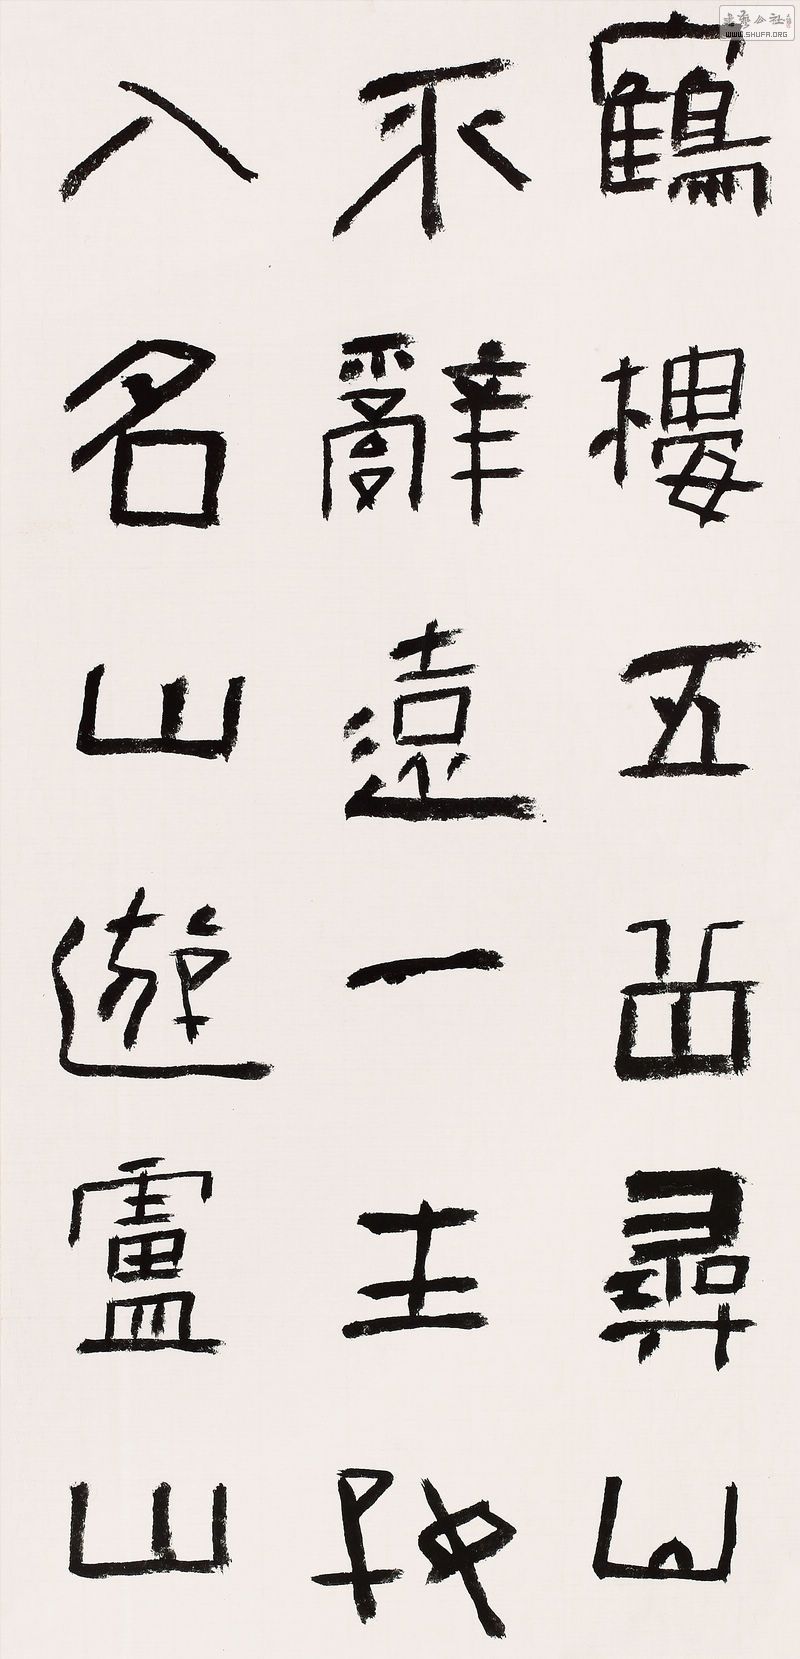 鶴樓五岳尋仙
不辭遠一生好
入名山遊盧山
書藝公社
www.SHUFA.ORG